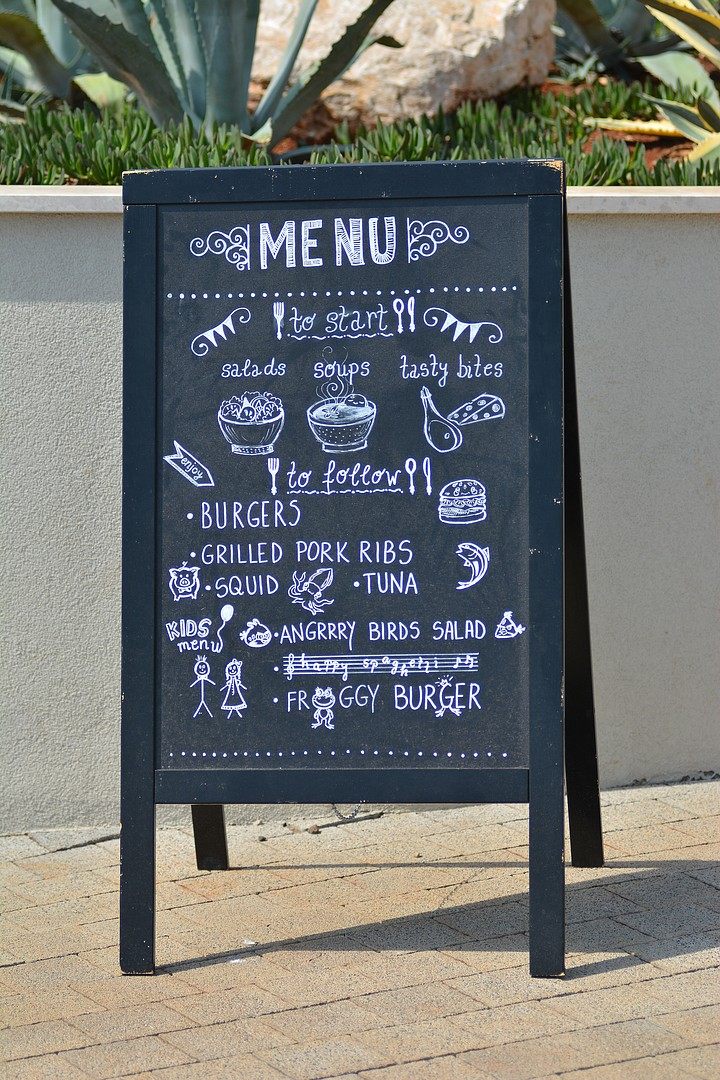 MENU
to start
salads soups tasty bites
enjoy
to follow
• BURGERS
• GRILLED PORK RIBS
• SQUID • TUNA
KIDS
menu
• ANGRRRY BIRDS SALAD
• happy spaghetti
• FROGGY BURGER